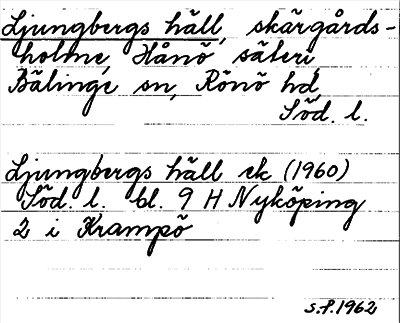 Ljungbergs häll, skärgårds-
holme, Hånö säteri,
Bälinge sn, Rönö hd,
Söd. l.
Ljungbergs häll ek (1960)
Söd. l. bl. 9 H Nyköping
2 i Krampö
S.P.1962